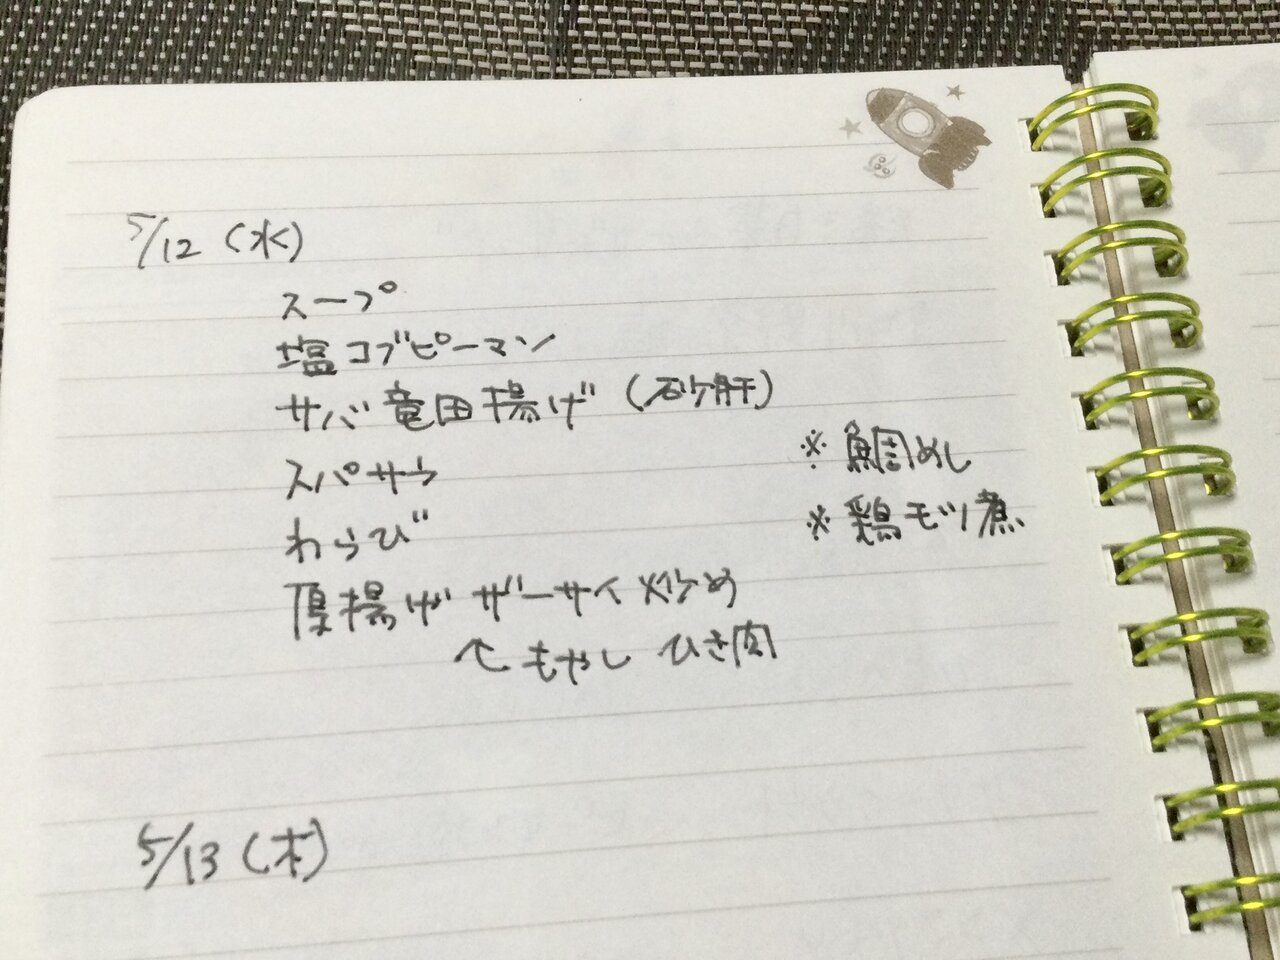 5/12 (水)
スープ
塩コブピーマン
サバ竜田揚げ (砂肝)
スパサラ
※鯛めし
わらび
※鶏モツ煮
厚揚げザーサイ炒め
↖もやし ひき肉
5/13 (木)